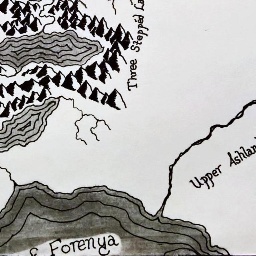 Three Stepped La
Upper Ashlan
f Forenya